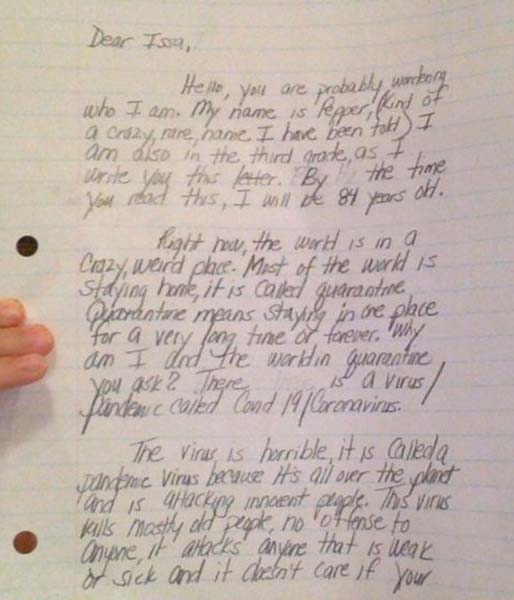 Dear Issa,
Hello, you are probably wondering
who I am. My name is Pepper, (kind of
a crazy, rare, name I have been told) I
am also in the third grade, as I
write you this letter. By the time
you read this, I will be 84 years old.
Right now, the world is in a
crazy, weird place. Most of the world is
staying home, it is called quarantine
Quarantine means staying in one place
for a very long time or forever. Why
am I and the world in quarantine
you ask? There is a virus/
pandemic called Covid 19/Coronavirus.
The virus is horrible, it is called a
pandemic virus because it's all over the planet
and is attacking innocent people. This virus
kills mostly old people, no offense to
anyone, it attacks anyone that is weak
or sick and it doesn't care if your